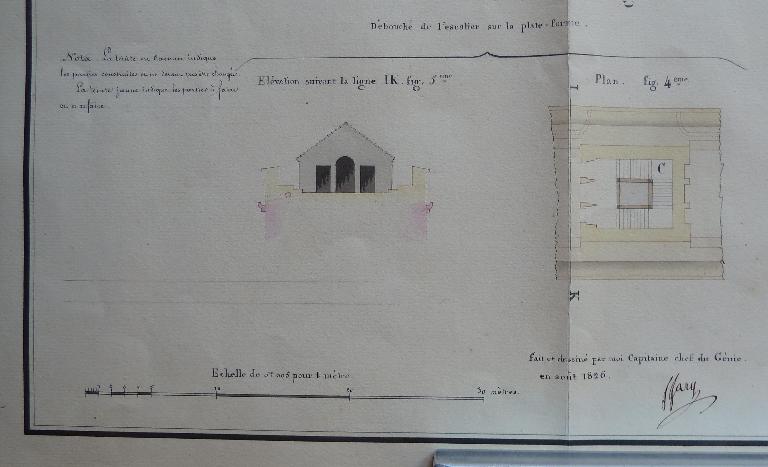 Débouché de l'escalier sur la plate-forme.
Nota La teinte en carmin indique
les parties construites ou ne devant pas être changées.
La teinte jaune indique les parties à faire
ou à refaire.
Elévation suivant la ligne IK. fig. 5eme
Plan. fig. 4eme
I
C
K
Echelle de 0m005 pour 1 mètre.
10
20
30 mètres.
Fait et dessiné par moi Capitaine chef du Génie.
en août 1826.